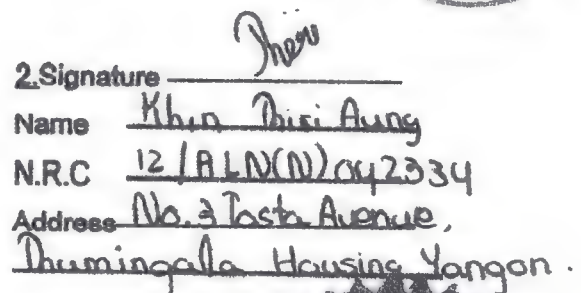 Thiri
2.Signature
Name Khin Thiri Aung
N.R.C 12/ALN(N)042334
Address No.3 Tasta Avenue,
Thumingalla Housing Yangon.